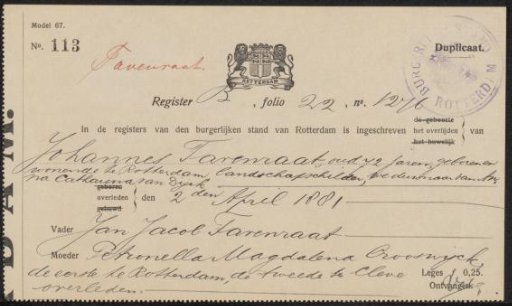 Model 67.
No. 113
Duplicaat.
Tavenraat.
ROTTERDAM
BURG ROTTERDAM
Register B. folio 22 no. 1276
In de registers van den burgerlijken stand van Rotterdam is ingeschreven
de geboorte
het overlijden
het huwelijk
van
Johannes Tavenraat, oud 72 jaren, geboren en
wonende te Rotterdam, landschapschilder, weduwnaar van
na Catharina van Dyck
geboren
overleden
gehuwd
den 2 den April 1881
Vader Jan Jacob Tavenraat
Moeder Petronella Magdalena Crooswyck,
de eerste te Rotterdam, de tweede te Cleve
overleden.
Leges f 0,25.
Ontvangen
DAM.